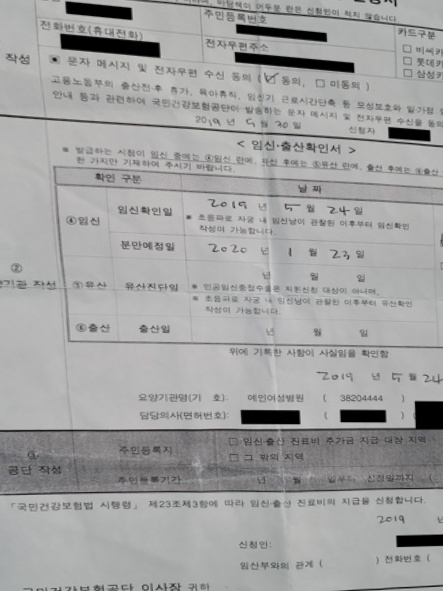 주민등록번호
카드구분
전화번호(휴대전화)
전자우편주소
작성
문자 메시지 및 전자우편 수신 동의 (☑ 동의, □ 미동의)
고용노동부의 출산전·후 휴가, 육아휴직, 임신기 근로시간단축 등 모성보호와 일가정
안내 등과 관련하여 국민건강보험공단이 발송하는 문자 메시지 및 전자우편 수신을 동의
2019 년 5 월 30 일
신청자
< 임신·출산확인서 >
※ 발급하는 시점이 임신 중에는 ④임신 란에, 유산 후에는 ⑤유산 란에, 출산 후에는 ⑥출산
한 가지만 기재하여 주시기 바랍니다.
확인 구분
날 짜
④임신
임신확인일
2019 년 5 월 24 일
※ 초음파로 자궁 내 임신낭이 관찰된 이후부터 임신확인
작성이 가능합니다.
분만예정일
2020 년 1 월 23 일
②
기관 작성
⑤유산
유산진단일
년 월 일
※ 인공임신중절수술은 지원신청 대상이 아니며,
※ 초음파로 자궁 내 임신낭이 관찰된 이후부터 유산확인
작성이 가능합니다.
⑥출산
출산일
년 월 일
위에 기록한 사항이 사실임을 확인함
2019 년 5 월 24
요양기관명(기 호): 예인여성병원 ( 38204444 )
담당의사(면허번호): ( )
③
공단 작성
주민등록지
□ 임신·출산 진료비 추가금 지급 대상 지역
□ 그 밖의 지역
주민등록기간
년 월 일부터 신청일까지 (
「국민건강보험법 시행령」 제23조제3항에 따라 임신·출산 진료비의 지급을 신청합니다.
2019
신청인:
임산부와의 관계 ( ) 전화번호 (
국민건강보험공단 이사장 귀하